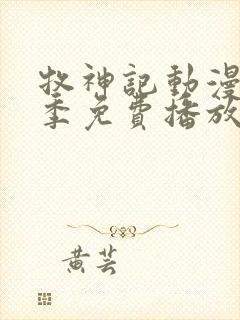 牧神記動漫
季免費播放
黃芸